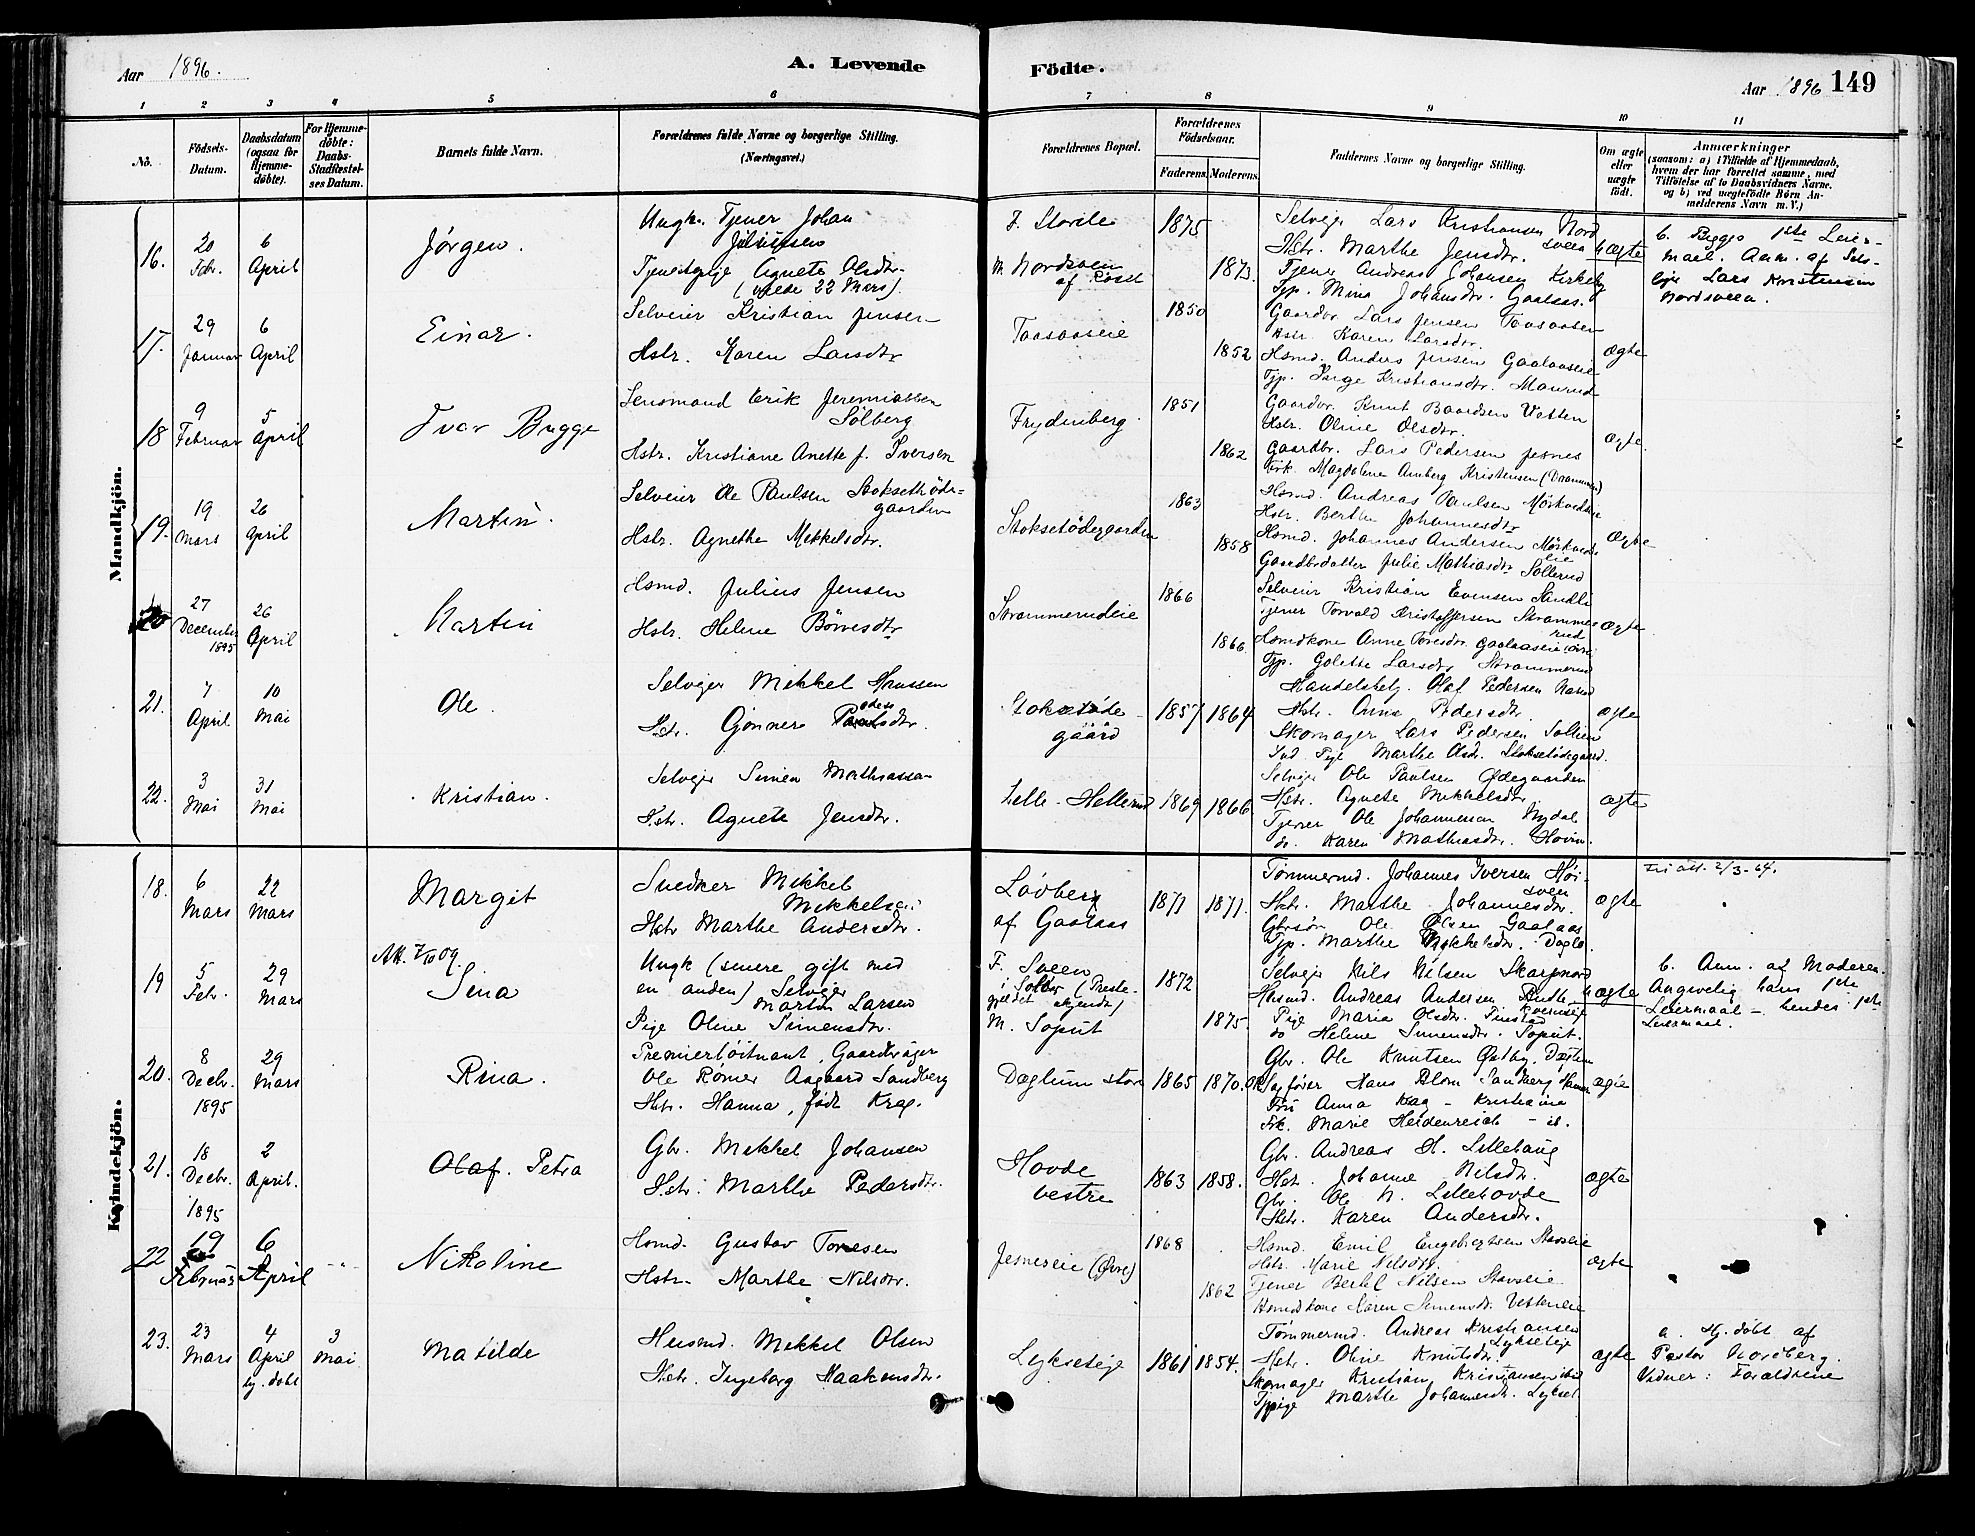 Aar 1896. A. Levende Födte. Aar 1896 149
1 2 3 4 5 6 7 8 9 10 11
No. Födsels-Datum. Daabsdatum (ogsaa for Hjemme-döbte). For Hjemme-döbte: Daabs-Stadfæstel-ses Datum. Barnets fulde Navn. Forældrenes fulde Navne og borgerlige Stilling. (Næringsvei.) Forældrenes Bopæl. Forældrenes Födselsaar. Faderens. Moderens. Faddernes Navne og borgerlige Stilling. Om ægte eller uægte födt. Anmærkninger (saasom: a) i Tilfælde af Hjemmedaab, hvem der har forrettet samme, med Tilföielse af to Daabsvidners Navne. og b) ved uægtefödte Börn An-melderens Navn m. V.)
Mandkjön.
16. 20 Febr. 6 April Jørgen.
Ungk. Tjener Johan
Tjenestepige Agnete Olsdtr.
(vilde 22 Mars)
M. Nordsveen
1875 1873
Selvejer Lars Kristiansen Nord
sveen
Hstr. Marthe Jensdtr.
Tjener Andreas Johansen Kirkeby
Tjp. Mina Johansdtr. Gaalaas.
uægte
b. Begges 1ste Leier-
maal. Anm. af Selv-
ejer Lars Kristiansen
Nordsveen.
17. 29 Januar 6 April Einar.
Selveier Kristian Jensen
Hstr. Karen Larsdtr
Taasaaseie
1850 1852
Gaardbr. Lars Jensen Taasaasen
Hstr. Karen Larsdtr.
Hsmd. Anders Jensen Gaalaaseie
Tjp. Inge Kristiansdtr. Maurud
ægte
18 9 Februar 5 April Ivar Bugge
Lensmand Erik Jeremiassen
Sølberg
Hstr. Kristiane Anette f. Iversen
Frydenberg.
1851 1862
Gaardbr. Knut Baardsen Vetten
Hstr. Oline Olsdtr.
Gaardbr. Lars Pedersen Jesnes
Frk. Magdalene Amberg Kristensen (Drammen)
ægte
19. 19 Mars 26 April Martin.
Selveier Ole Paulsen Stoksethöde-
gaarden
Hstr. Agnethe Mikkelsdtr.
Stoksetödegaarden
1863 1858
Hsmd. Andreas Paulsen Mörkvedeie
Hstr. Berthe Johannesdtr
Hsmd. Johannes Andersen Mörkved
eie
Gaardbrdatter Julie Mathiasdtr Sollerud
ægte
20 27 December 1895 26 April Martin
Hsmd. Julius Jensen
Hstr. Helene Börresdtr
Strammerudeie
1866 1866
Selveier Kristian Evensen Sandli
Tjener Torvald Kristoffersen Strammerud
Hsmdkone Anne Toresdtr Gaalaaseie
Tjp. Golette Larsdtr Strammerud
ægte
21. 7 April 10 Mai Ole.
Selvejer Mikkel Hanssen
Hstr. Gjønner
Stoksetøde-
gaard
1857 1864
Handelsbetj. Olaf Pedersen
Hstr. Anne Pedersdtr.
Skomager Lars Pedersen Sollien
Ind. Pige Marthe Olsdtr. Stoksetødegaard.
ægte
22. 3 Mai 31 Mai Kristian.
Selvejer Simen Mathiassen
Hstr. Agnete Jensdtr.
Lille-Hellerud
1869 1866
Selvejer Ole Paulsen Ødegaarden
Hstr. Agnete Mikkelsdtr.
Tjener Ole Johannessen Nydal
do. Karen Mathiasdtr. Hovin.
ægte
Kvindekjön.
18. 6 Mars 22 Mars Margit
Snedker Mikkel
Mikkelsen
Hstr Marthe Andersdtr.
Løvberg
af Gaalaas
1871 1871.
Tømmermd. Johannes Iversen Høi-
sveen
Hstr. Marthe Johannesdtr.
Gbrsøn Ole Olsen Gaalaas
Tjp. Marthe Mikkelsdtr.
ægte
2/3-64.
19 5 Febr. 29 Mars Att. 7/10 09. Sina
Ungk (senere gift med
en anden) Selvejer
Martin Larsen
Pige Oline Simensdtr.
F. Sveen
M. Soput
1872 1875.
Selvejer Nils Nilsen Skarpnord
Husmd. Andreas Andersen
Pige Maria Olsdtr.
do Helene Simensdtr. Soput.
uægte
b. Anm. af Moderen.
Angivelig hans 1ste
Leiermaal - hendes 1ste
Leiermaal.
20. 8 Decbr. 1895 29 Mars Rina.
Premierløitnant, Gaardbruger
Ole Rømer Aagaard Sandberg
Hstr. Hanna, født Krag.
Dæglum store
1865 1870.
Gbr. Ole Knutsen Østby,
Sagfører Hans Blom Sandberg Hamar
Frk. Anna Krag - Kristiania
Frk. Marie Heidenreich - id.
ægte
21. 18 Decbr. 1895 2 April. Olaf. Petra
Gbr. Mikkel Johansen
Hstr. Marthe Pedersdtr.
Hovde
vestre
1863 1858.
Gbr. Andreas H. Lillehaug
Hstr. Johanne Nilsdtr.
Gbr. Ole N. Lillehovde
Hstr. Karen Andersdtr.
ægte
22 19 Februar 6 April Nikoline
Hsmd. Gustav Toresen
Hstr. Marthe Nilsdtr.
Jesneseie (Øvre)
1868 1862
Hsmd. Emil Engebretsen Stavseie
Hstr. Marie Nilsdtr.
Tjener Bertel Nilsen Stavseie
Hsmdskone Karen Simensdtr. Vetteneie
ægte
23. 23 Mars 4 April hj. døbt 3 Mai Matilde
Husmd. Mikkel Olsen
Hstr. Ingeborg Haakensdtr.
Lykseteje
1861 1854.
Tømmermd. Andreas Kristiansen
Lykseteje
Hstr. Oline Knutsdtr.
Skomager Kristian Kristiansen ibid
Tjpige Marthe Johannesdtr. Lykset
ægte
a. Hj. døbt af
Pastor Nordberg.
Vidner: Forældrene